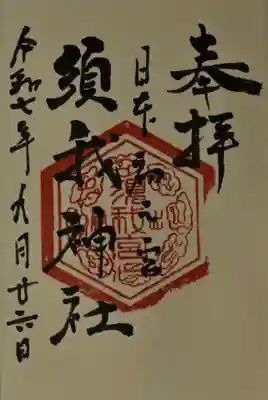 奉拝
日本初之宮
須我神社
令和七年九月廿六日